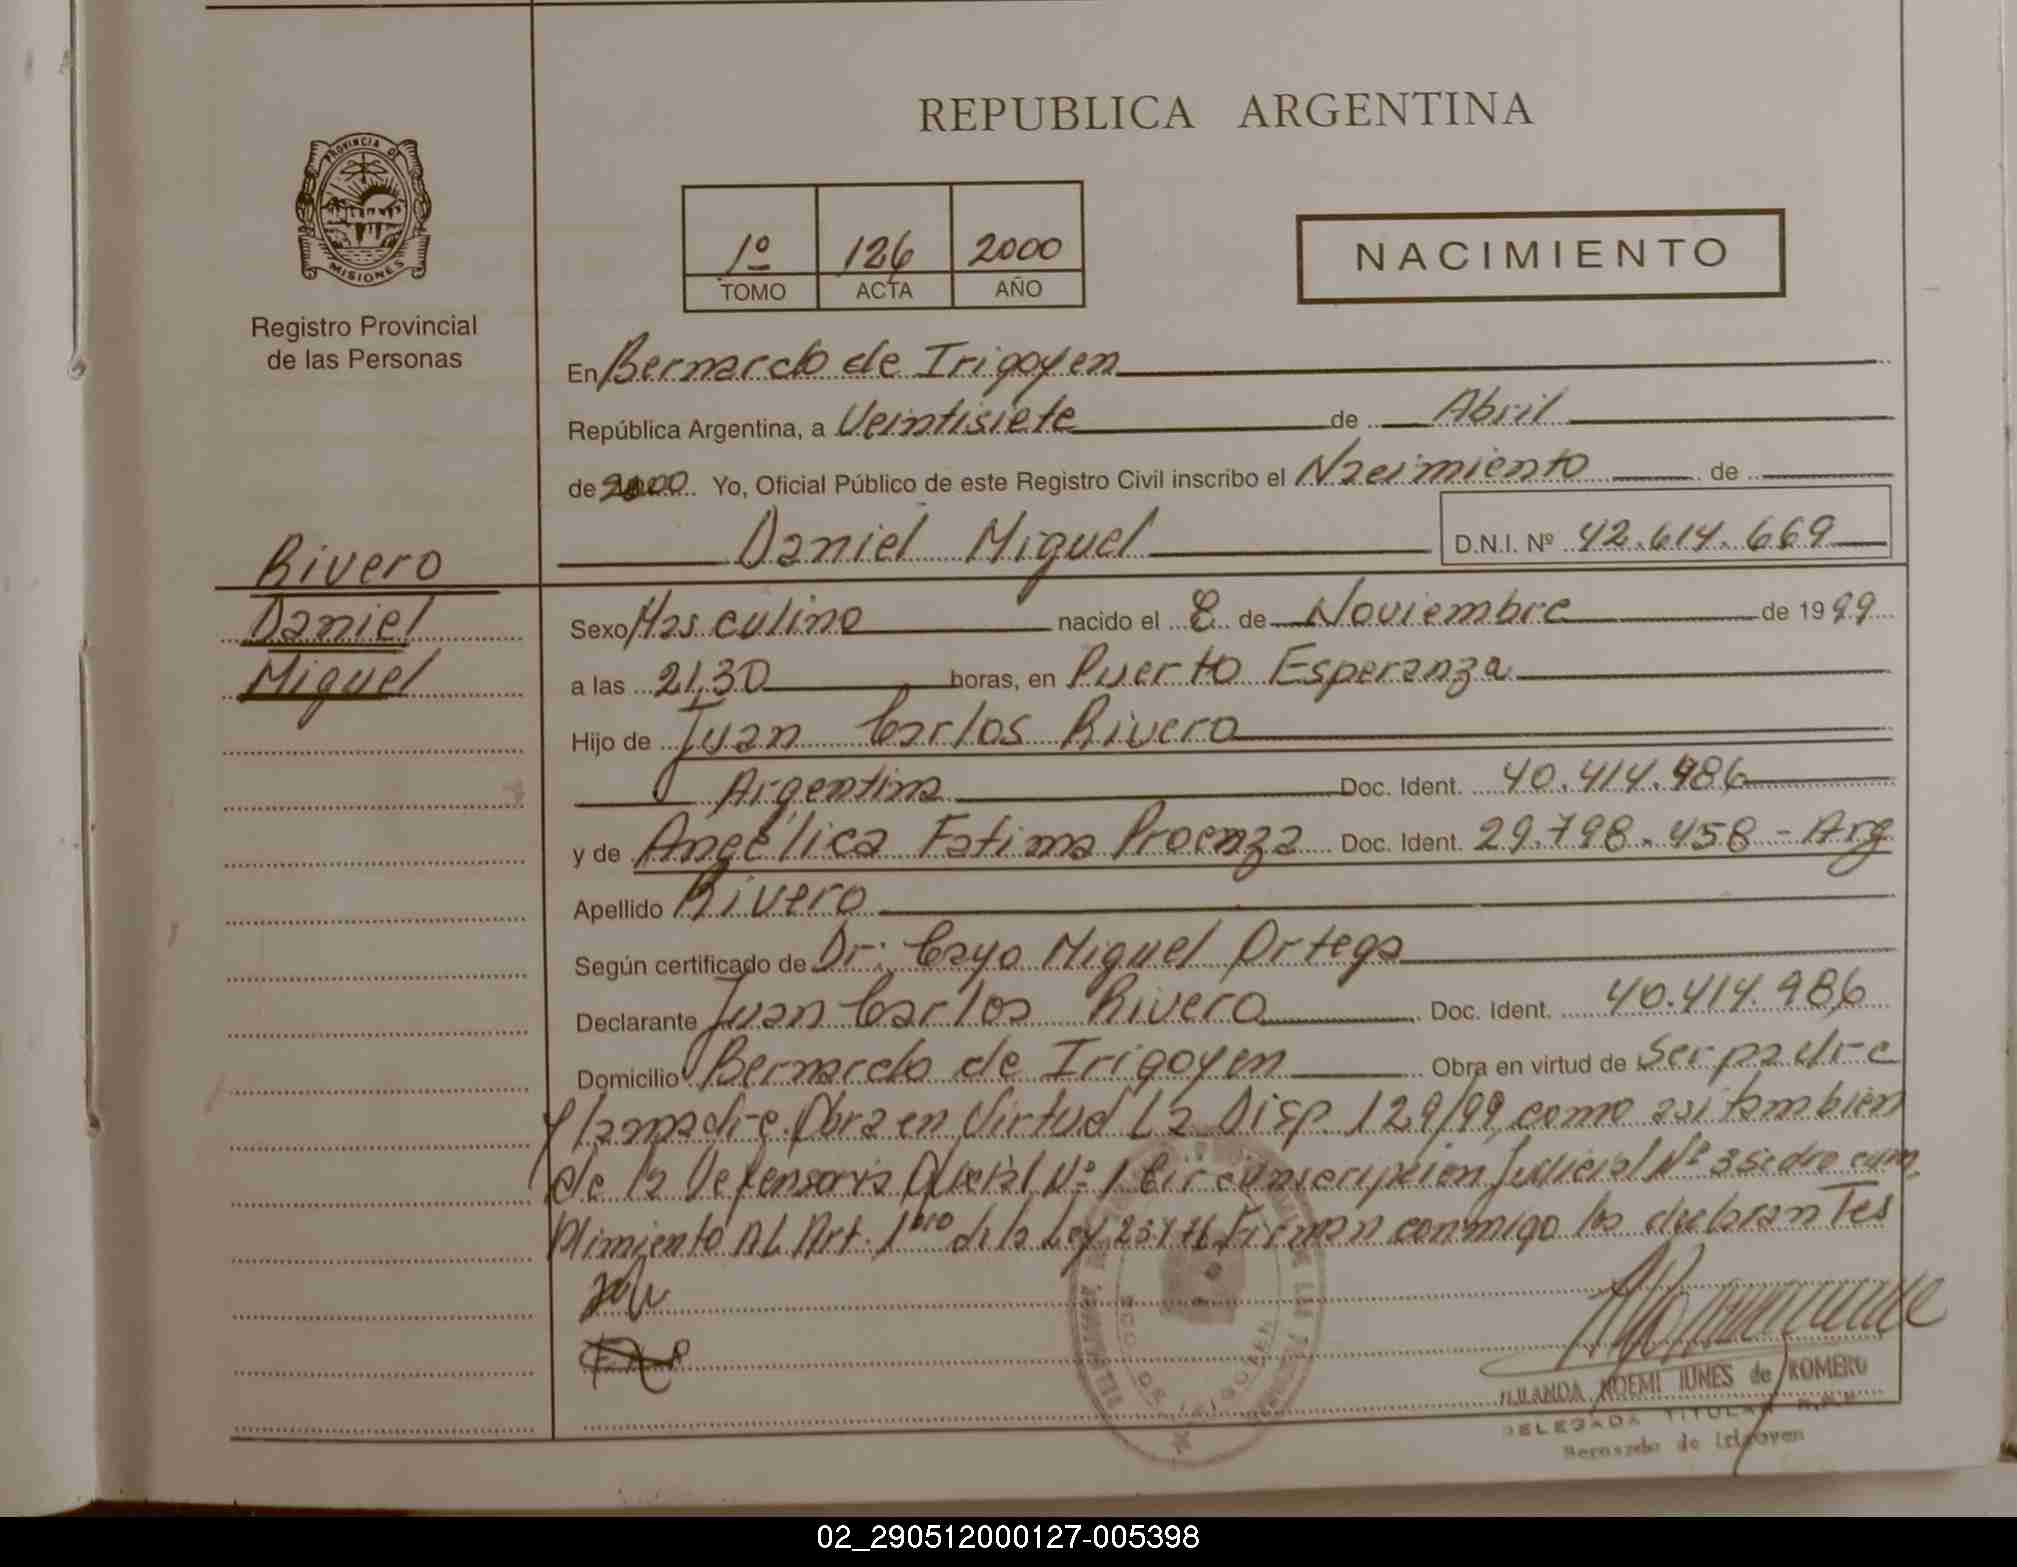 REPUBLICA ARGENTINA
PROVINCIA DE
MISIONES
Registro Provincial
de las Personas
1º 126 2000
TOMO ACTA AÑO
NACIMIENTO
En Bernardo de Irigoyen
República Argentina, a Veintisiete de Abril
de 2000 Yo, Oficial Público de este Registro Civil inscribo el Nacimiento de
Daniel Miguel D.N.I. Nº 42.614.669
Rivero
Daniel
Miguel
Sexo Masculino nacido el 8 de Noviembre de 1999
a las 21,30 horas, en Puerto Esperanza
Hijo de Juan Carlos Rivero
Argentina Doc. Ident. 40.414.986
y de Angélica Fatima Proenza Doc. Ident. 29.798.458 - Arg
Apellido Rivero
Según certificado de Dr: Cayo Miguel Ortega
Declarante Juan Carlos Rivero Doc. Ident. 40.414.986
Domicilio Bernardo de Irigoyen Obra en virtud de Ser padre
y la madre. Obra en Virtud La Disp. 129/99, como asi tambien
de la Defensoria Oficial Nº 1 Circunscripcion Judicial Nº 3 se dro cum
plimiento AL Art. 1ero de la Ley Firman conmigo los declarantes
NOEMI IUNES de ROMERO
DELEGADA TITULAR
Bernardo de Irigoyen
02_290512000127-005398